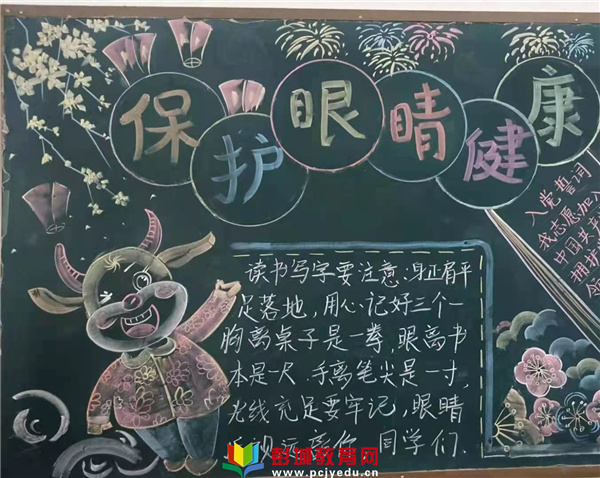 保护眼睛健康
读书写字要注意:身正肩平
足落地,用心记好三个一
胸离桌子是一拳,眼离书
本是一尺.手离笔尖是一寸,
光线充足要牢记,眼睛
同学们.
入党誓词
我志愿加入
中国共产
拥护
彭城教育网
www.pcjyedu.cn